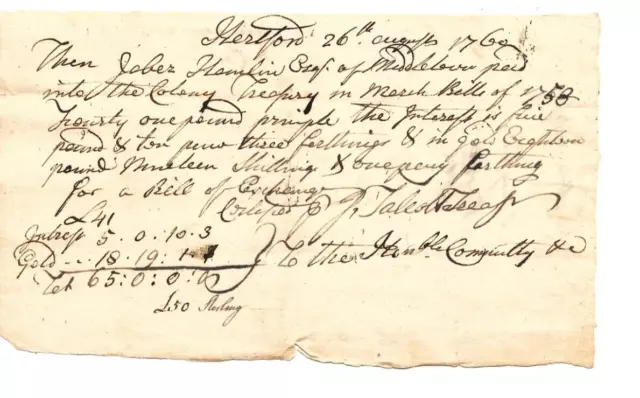 Hertford 26th August 1760
Then Jabez Hamlin Esqr. of Middletown paid
into the Colony Treasury in March Bills of 1758
Fourty one pound prinsple the Interest is five
pound & ten penc three farthings & in Gold Eighteen
pound Nineteen Shillings & one peny farthing
for a Bill of Exchange
Certified p J. Talcott Treasr
£41
Intrest 5. 0. 10. 3
Gold 18. 19. 1. 1
65: 0: 0: 0
To the Honble. Committy &c
£50 Sterling